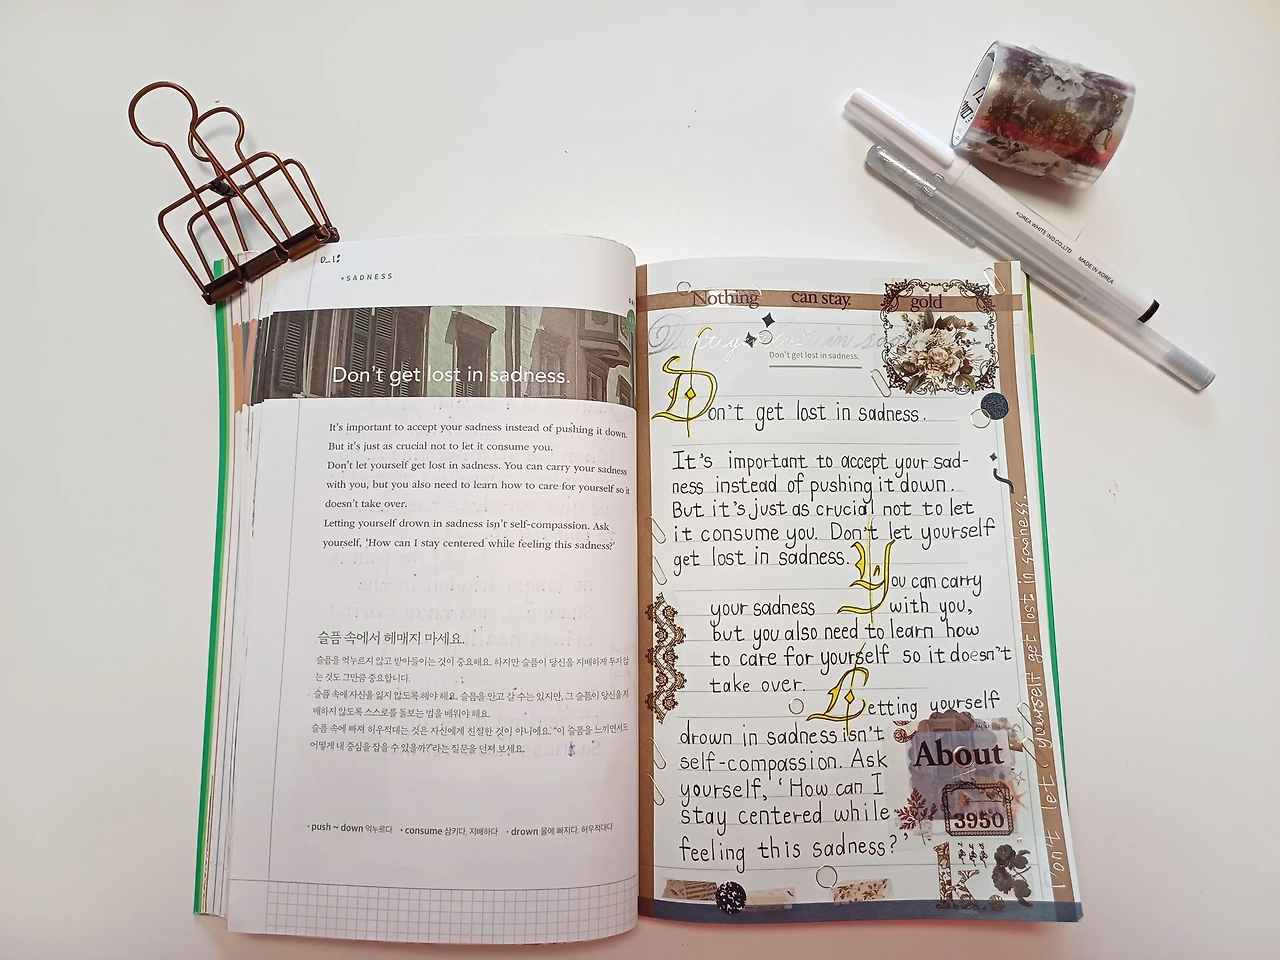 •SADNESS
Don't get lost in sadness.
It's important to accept your sadness instead of pushing it down.
But it's just as crucial not to let it consume you.
Don't let yourself get lost in sadness. You can carry your sadness
with you, but you also need to learn how to care for yourself so it
doesn't take over.
Letting yourself drown in sadness isn't self-compassion. Ask
yourself, 'How can I stay centered while feeling this sadness?'
슬픔 속에서 헤매지 마세요.
슬픔을 억누르지 않고 받아들이는 것이 중요해요. 하지만 슬픔이 당신을 지배하게 두지 않
는 것도 그만큼 중요합니다.
슬픔 속에 자신을 잃지 않도록 해야 해요. 슬픔을 안고 갈 수는 있지만, 그 슬픔이 당신을 지
배하지 않도록 스스로를 돌보는 법을 배워야 해요.
슬픔 속에 빠져 허우적대는 것은 자신에게 친절한 것이 아니에요. "이 슬픔을 느끼면서도
어떻게 내 중심을 잡을 수 있을까?"라는 질문을 던져 보세요.
• push ~ down 억누르다 • consume 삼키다, 지배하다 • drown 물에 빠지다, 허우적대다
Nothing can stay. gold
Don't get lost in sadness.
Don't get lost in sadness.
Don't get lost in sadness.
It's important to accept your sad-
ness instead of pushing it down.
But it's just as crucial not to let
it consume you. Don't let yourself
get lost in sadness.
You can carry
your sadness with you,
but you also need to learn how
to care for yourself so it doesn't
take over.
Letting yourself
drown in sadness isn't
self-compassion. Ask
yourself, 'How can I
stay centered while
feeling this sadness?'
About
3950
K
Dont let yourself get lost in sadness.
KOREA WHITE IND.CO.,LTD MADE IN KOREA